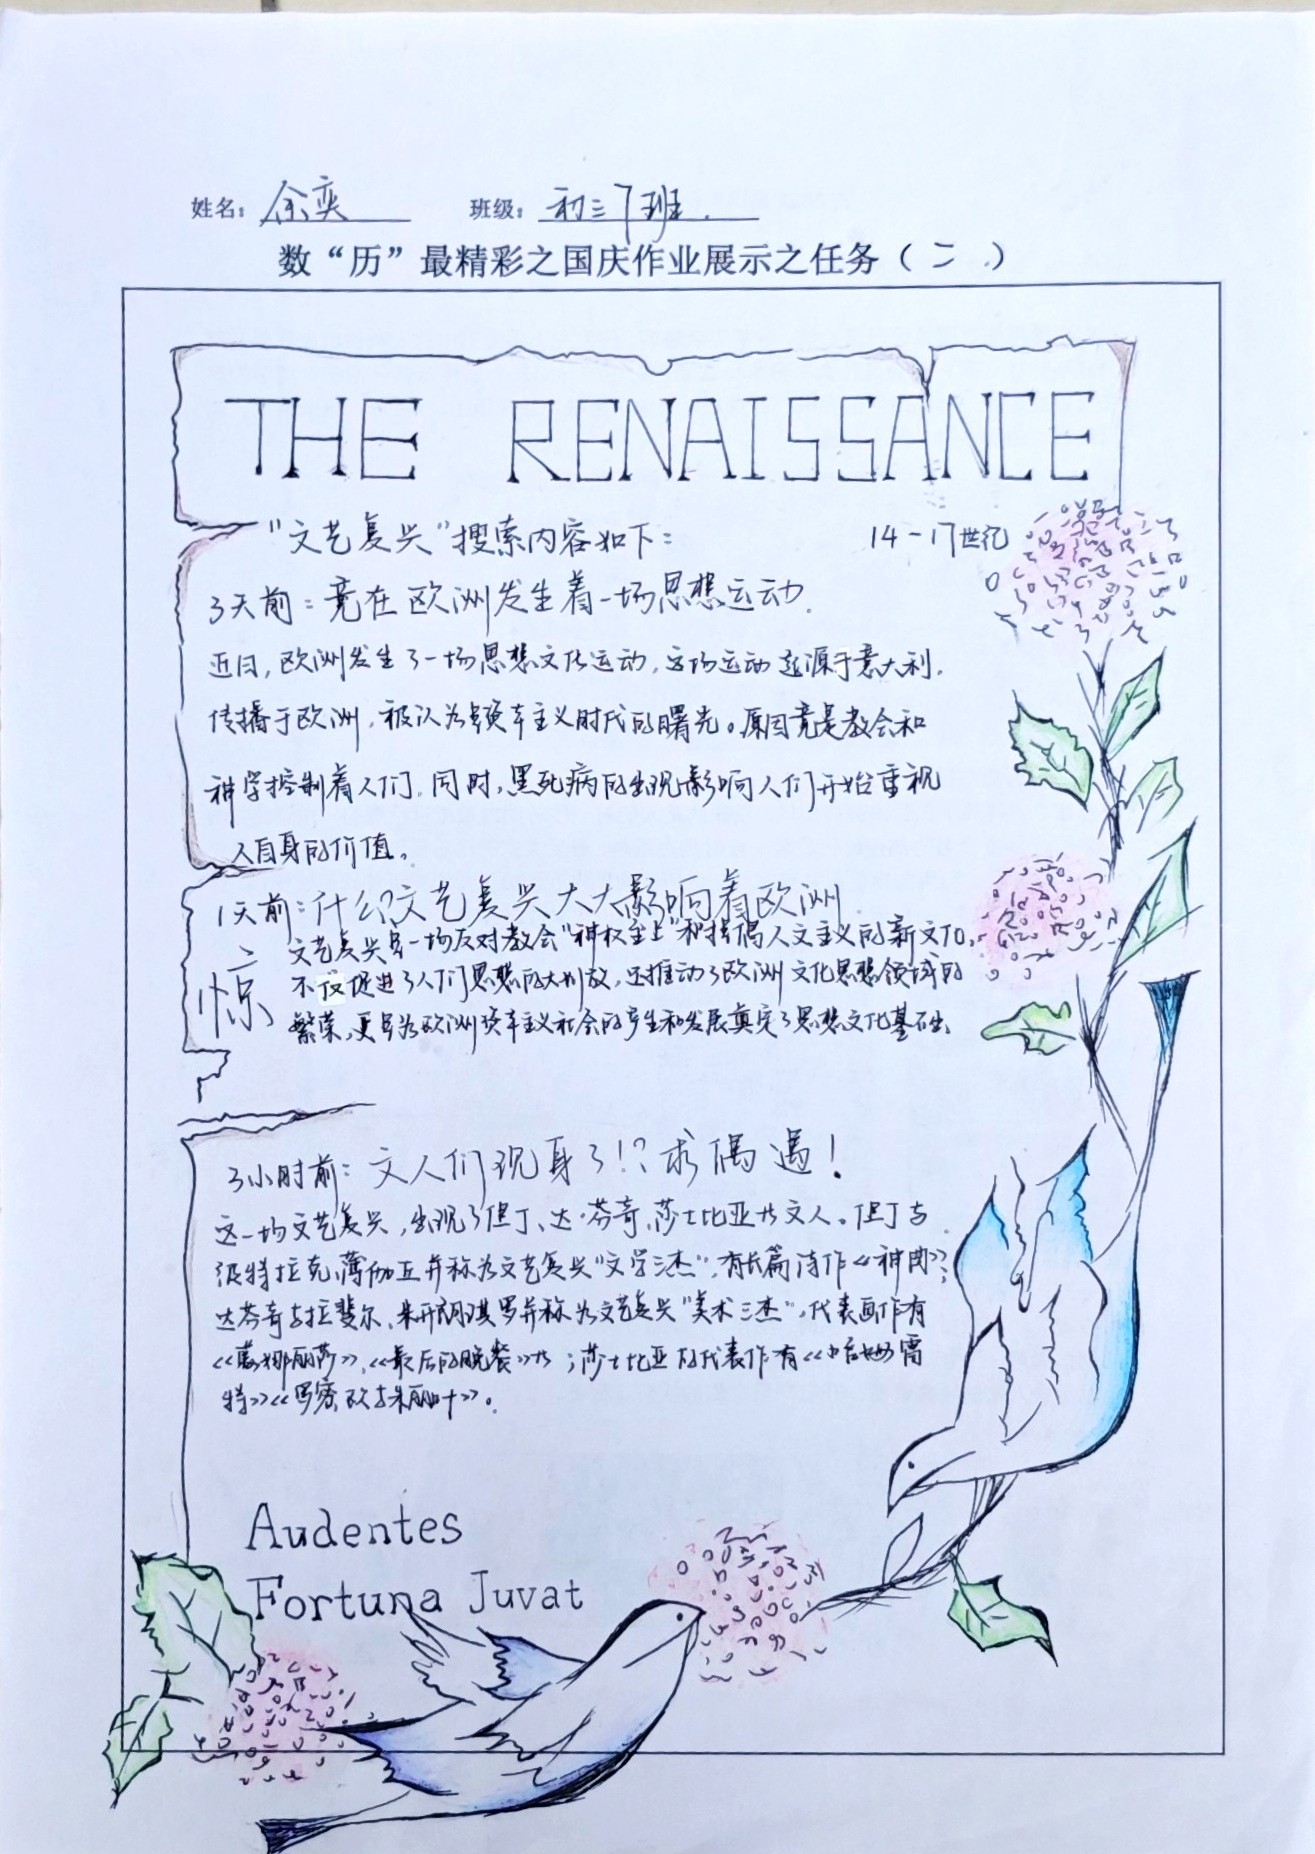 姓名：余奕 班级：初三7班.
数“历”最精彩之国庆作业展示之任务（二.）
THE RENAISSANCE
“文艺复兴”搜索内容如下： 14-17世纪
3天前：竟在欧洲发生着一场思想运动.
近日，欧洲发生了一场思想文化运动，这场运动起源于意大利，
传播于欧洲，被认为是资本主义时代的曙光。原因竟是教会和
神学控制着人们，同时，黑死病的出现影响人们开始重视
人自身的价值。
1天前：什么？文艺复兴大大影响着欧洲
惊
文艺复兴是一场反对教会“神权至上”和提倡人文主义的新文化，
不仅促进了人们思想的大解放，还推动了欧洲文化思想领域的
繁荣，更是为欧洲资本主义社会的产生和发展奠定了思想文化基础
3小时前：文人们现身了！？求偶遇！
这一场文艺复兴，出现了但丁、达·芬奇、莎士比亚等文人。但丁与
彼特拉克、薄伽丘并称为文艺复兴“文学三杰”，有长篇诗作《神曲》；
达芬奇与拉斐尔、米开朗琪罗并称为文艺复兴“美术三杰”，代表画作有
《蒙娜丽莎》、《最后的晚餐》等；莎士比亚的代表作有《哈姆雷
特》《罗密欧与朱丽叶》。
Audentes
Fortuna Juvat